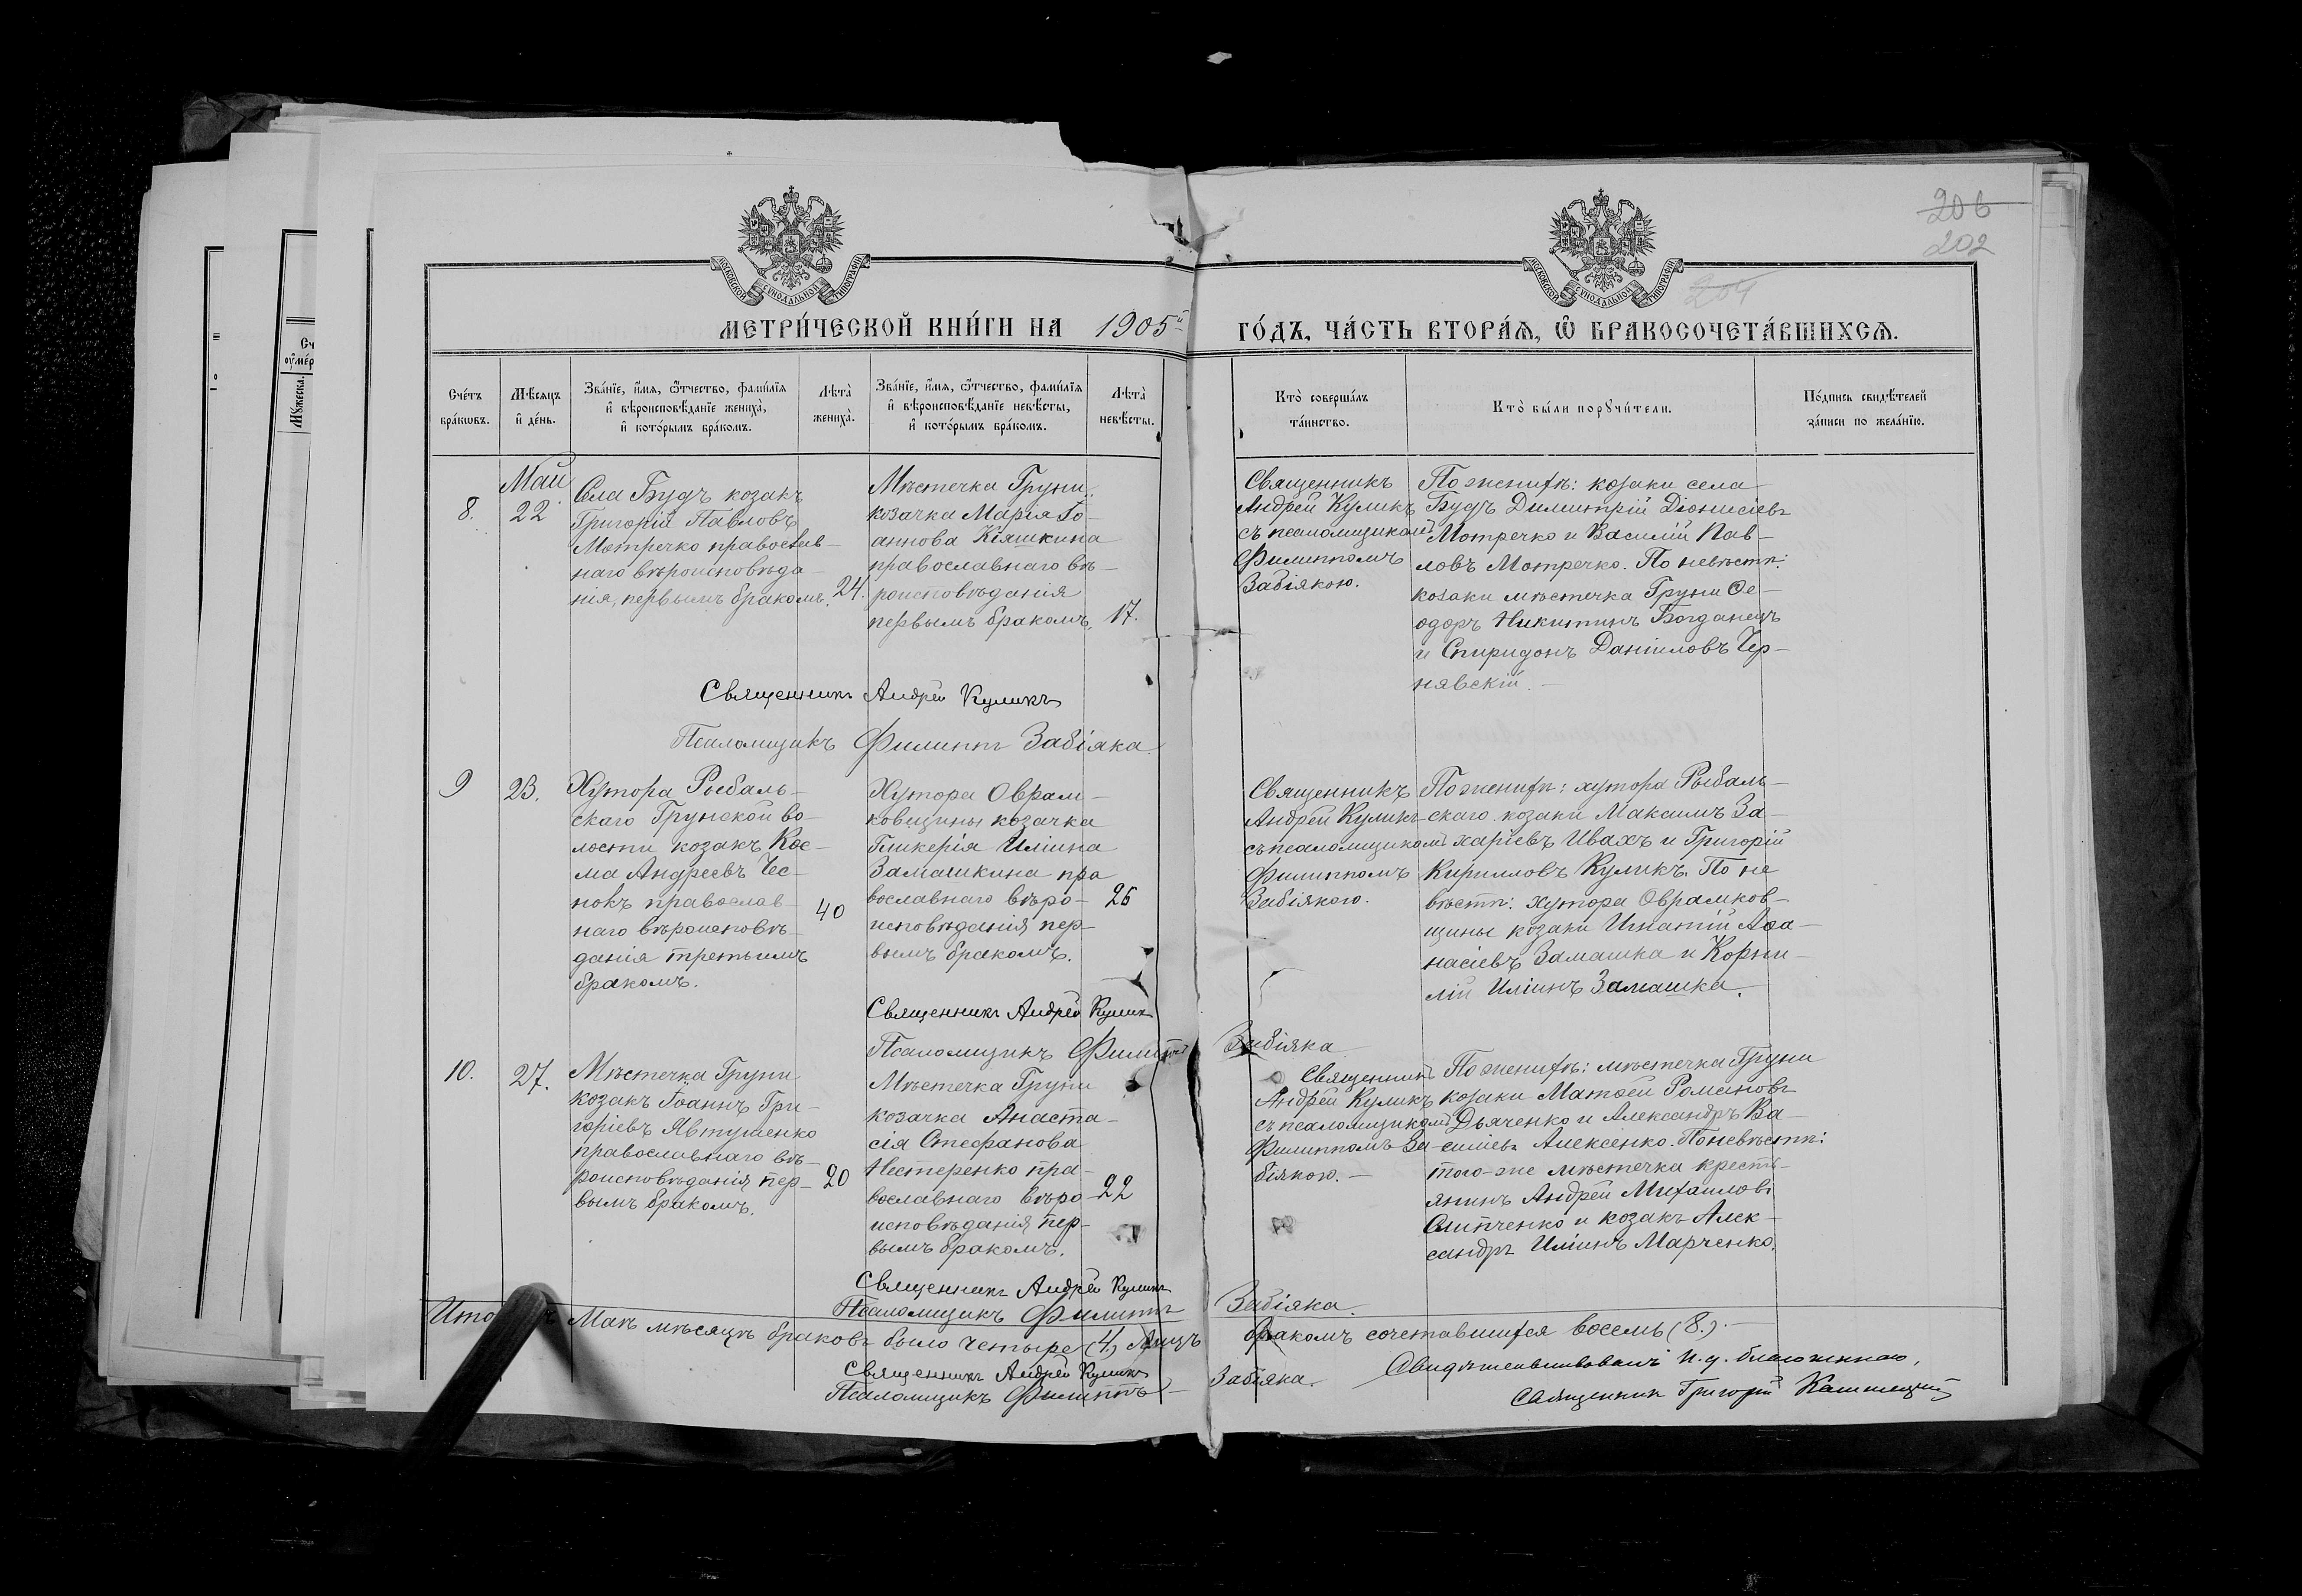 206
202
204
МОСКОВСКОЙ СѴНОДАЛЬНОЙ ТИПОГРАФІИ
МОСКОВСКОЙ СѴНОДАЛЬНОЙ ТИПОГРАФІИ
МЕТРИ́ЧЕСКОЙ КНИ́ГИ НА 1905й ГО́ДЪ, ЧА́СТЬ ВТОРА́Ѧ, Ѿ БРАКОСОЧЕТА́ВШИХСѦ.
Сче́тъ
бра́кѡвъ.
Мѣ́сяцъ
и҆ де́нь.
Зва́нїе, и҆́мѧ, ѻ҆́тчество, фами́лїѧ
и҆ вѣроисповѣ́данїе жениха̀,
и҆ кото́рымъ бра́комъ.
Лѣ́та
жениха̀.
Зва́нїе, и҆́мѧ, ѻ҆́тчество, фами́лїѧ
и҆ вѣроисповѣ́данїе невѣ́сты,
и҆ кото́рымъ бра́комъ.
Лѣ́та
невѣ́сты.
Кто̀ соверша́лъ
та́инство.
Кто̀ бы́ли порꙋчи́тели.
По́дпись свидѣ́телей
за́писи по жела́нїю.
Сч
оу҆ме́р
Мꙋ́жеска.
8.
Май
22
Села Будъ козакъ
Григорій Павловъ
Мотречко православ-
наго вѣроисповѣда-
нія, первымъ бракомъ.
24.
Мѣстечка Груни
козачка Марія Іо-
аннова Кіяшкина
православнаго вѣ-
роисповѣданія
первымъ бракомъ.
17.
Священникъ
Андрей Куликъ
съ псаломщикомъ
Филиппомъ
Забіякою.
По женихѣ: козаки села
Будъ Димитрій Діонисіевъ
Мотречко и Василій Пав-
ловъ Мотречко. По невѣстѣ:
козаки мѣстечка Груни Ѳе-
одоръ Никитинъ Богданецъ
и Спиридонъ Даніиловъ Чер-
нявскій.
Священникъ Андрей Куликъ
Псаломщикъ Филиппъ Забіяка.
9
23.
Хутора Рыбаль-
скаго Грунской во-
лости козакъ Кос-
ма Андреевъ Чес-
нокъ православ-
наго вѣроисповѣ-
данія третьимъ
бракомъ.
40
Хутора Оврам-
ковщины козачка
Гликерія Иліина
Замашкина пра
вославнаго вѣро-
исповѣданія пер-
вымъ бракомъ.
26
Священникъ
Андрей Куликъ
съ псаломщикомъ
Филиппомъ
Забіякою.
По женихѣ: хутора Рыбаль-
скаго козаки Максимъ За-
харіевъ Ивахъ и Григорій
Кирилловъ Куликъ. По не
вѣстѣ: хутора Оврамков-
щины козаки Игнатій Аѳа-
насіевъ Замашка и Корни-
лій Иліинъ Замашка.
Священникъ Андрей Куликъ
Псаломщикъ Филиппъ Забіяка
10.
27.
Мѣстечка Груни
козакъ Іоаннъ Гри-
горіевъ Явтушенко
православнаго вѣ-
роисповѣданія пер-
вымъ бракомъ.
20
Мѣстечка Груни
козачка Анаста-
сія Стефанова
Нестеренко пра-
вославнаго вѣро-
исповѣданія пер-
вымъ бракомъ.
22
Священникъ
Андрей Куликъ
съ псаломщикомъ
Филиппомъ За-
біякою.
По женихѣ: мѣстечка Груни
козаки Матѳей Романовъ
Дьяченко и Александръ Ва-
силіевъ Алексѣнко. По невѣстѣ:
того-же мѣстечка кресть-
янинъ Андрей Михаиловъ
Слипченко и козакъ Алек-
сандръ Иліинъ Марченко.
Священникъ Андрей Куликъ
Псаломщикъ Филиппъ Забіяка.
Маѣ мѣсяцѣ браковъ было четыре (4) Лицъ бракомъ сочетавшихся восемь (8.).
Священникъ Андрей Куликъ
Псаломщикъ Филиппъ Забіяка.
Свидѣтельствовалъ и. д. благочиннаго,
Священникъ Григорій